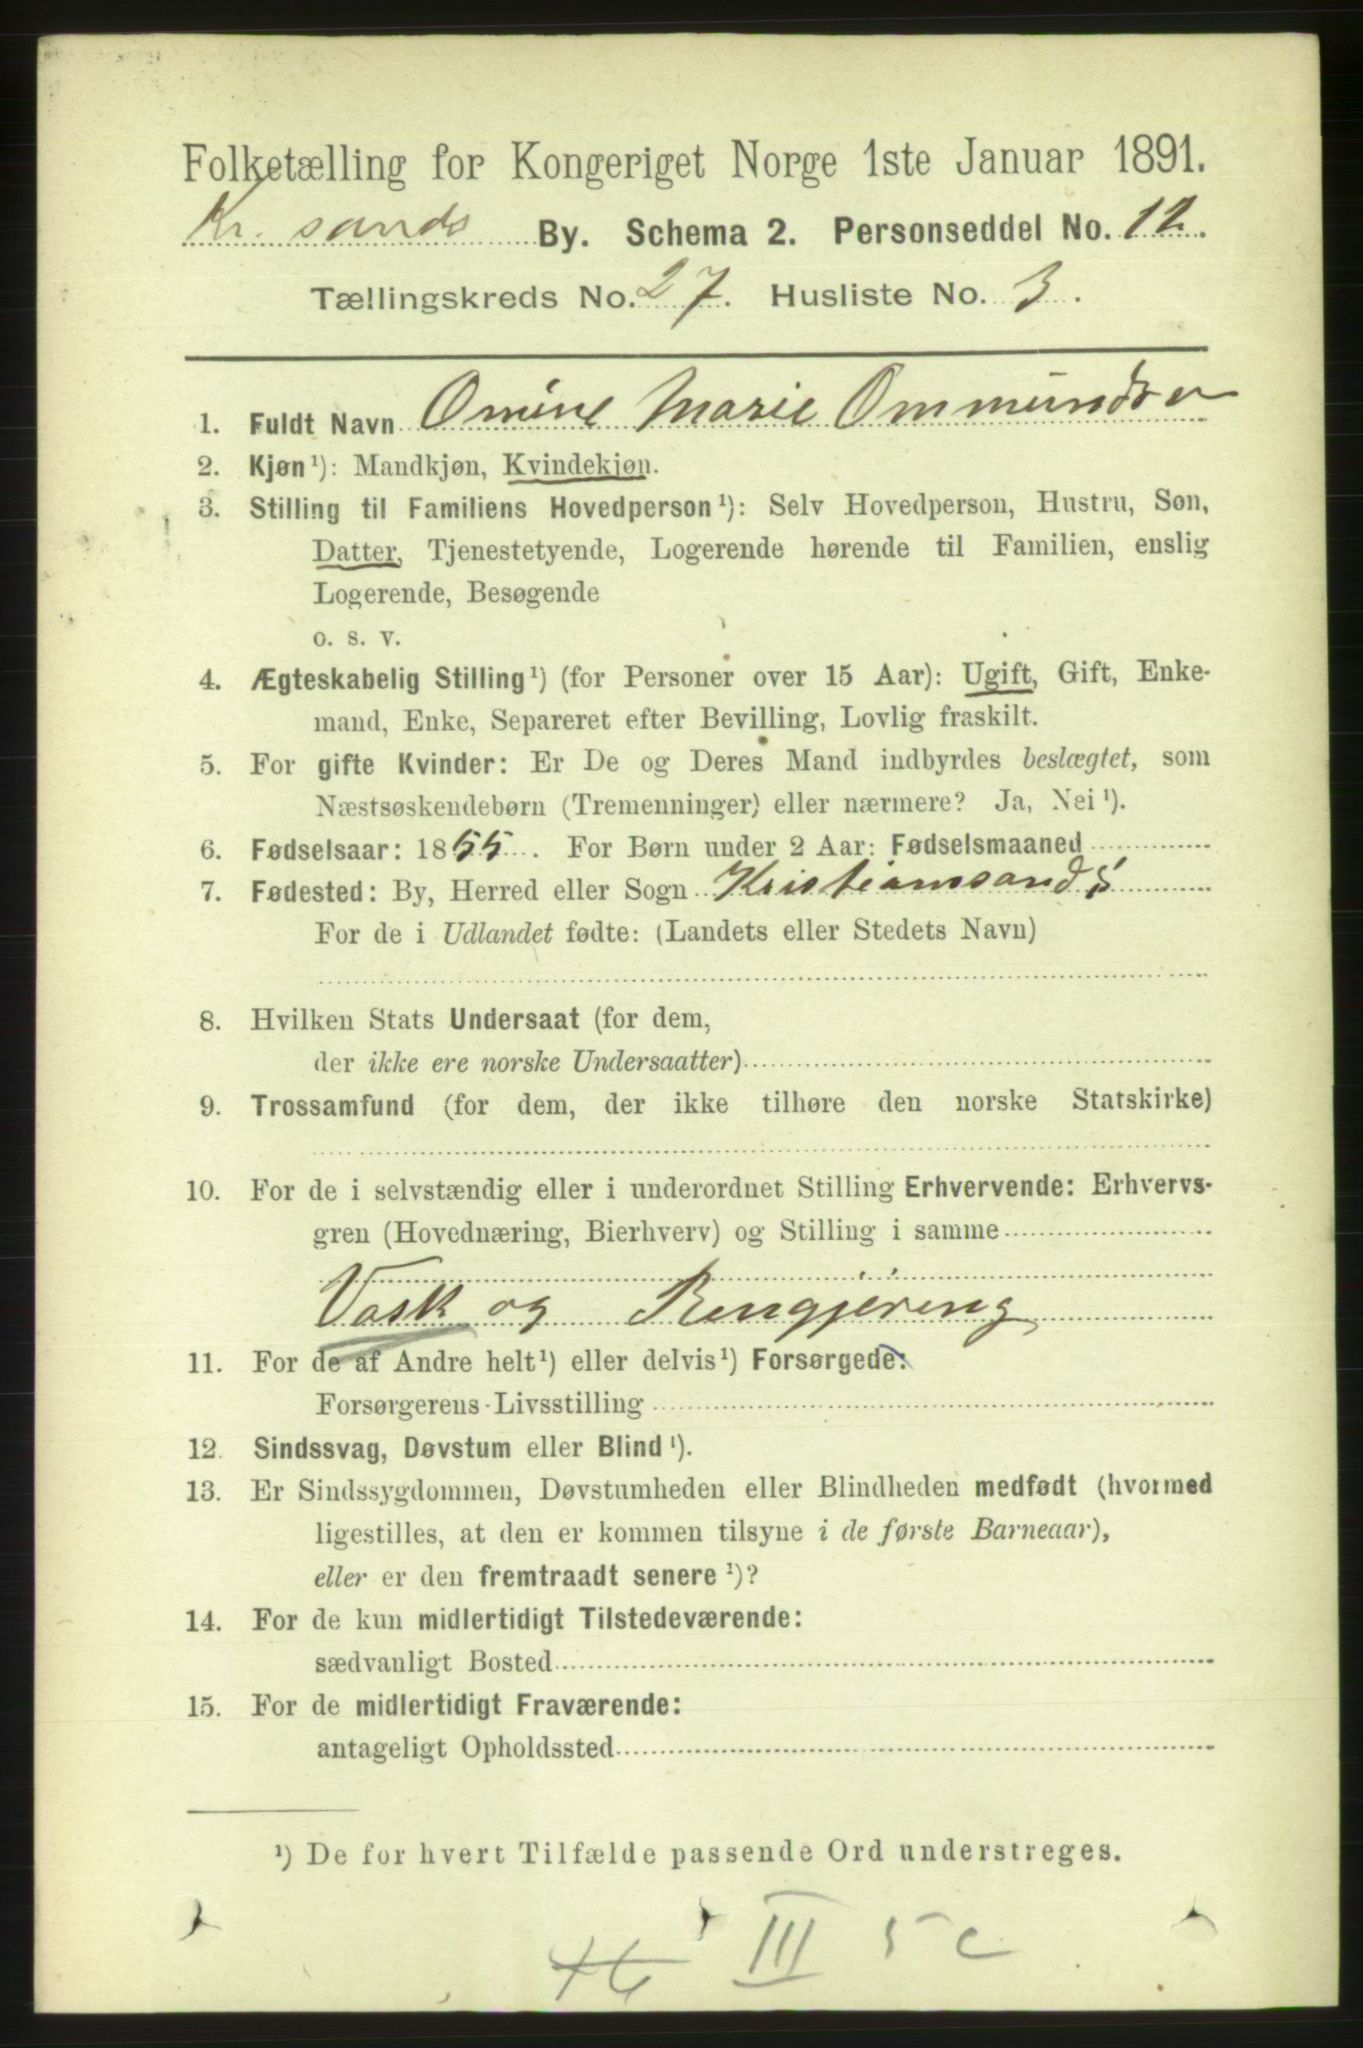 Folketælling for Kongeriget Norge 1ste Januar 1891.
Kr. sands By. Schema 2. Personseddel No. 12.
Tællingskreds No. 27. Husliste No. 3.
1. Fuldt Navn Omine Marie Ommundsen
2. Kjøn¹): Mandkjøn, Kvindekjøn.
3. Stilling til Familiens Hovedperson¹): Selv Hovedperson, Hustru, Søn,
Datter, Tjenestetyende, Logerende hørende til Familien, enslig
Logerende, Besøgende
o. s. v.
4. Ægteskabelig Stilling¹) (for Personer over 15 Aar): Ugift, Gift, Enke-
mand, Enke, Separeret efter Bevilling, Lovlig fraskilt.
5. For gifte Kvinder: Er De og Deres Mand indbyrdes beslægtet, som
Næstsøskendebørn (Tremenninger) eller nærmere? Ja, Nei¹).
6. Fødselsaar: 1855. For Børn under 2 Aar: Fødselsmaaned
7. Fødested: By, Herred eller Sogn Kristiansands
For de i Udlandet fødte: (Landets eller Stedets Navn)
8. Hvilken Stats Undersaat (for dem,
der ikke ere norske Undersaatter)
9. Trossamfund (for dem, der ikke tilhøre den norske Statskirke)
10. For de i selvstændig eller i underordnet Stilling Erhvervende: Erhvervs-
gren (Hovednæring, Bierhverv) og Stilling i samme
Vask og Rengjøring
11. For de af Andre helt¹) eller delvis¹) Forsørgede:
Forsørgerens Livsstilling
12. Sindssvag, Døvstum eller Blind¹).
13. Er Sindssygdommen, Døvstumheden eller Blindheden medfødt (hvormed
ligestilles, at den er kommen tilsyne i de første Barneaar),
eller er den fremtraadt senere¹)?
14. For de kun midlertidigt Tilstedeværende:
sædvanligt Bosted
15. For de midlertidigt Fraværende:
antageligt Opholdssted
¹) De for hvert Tilfælde passende Ord understreges.
III 5 c